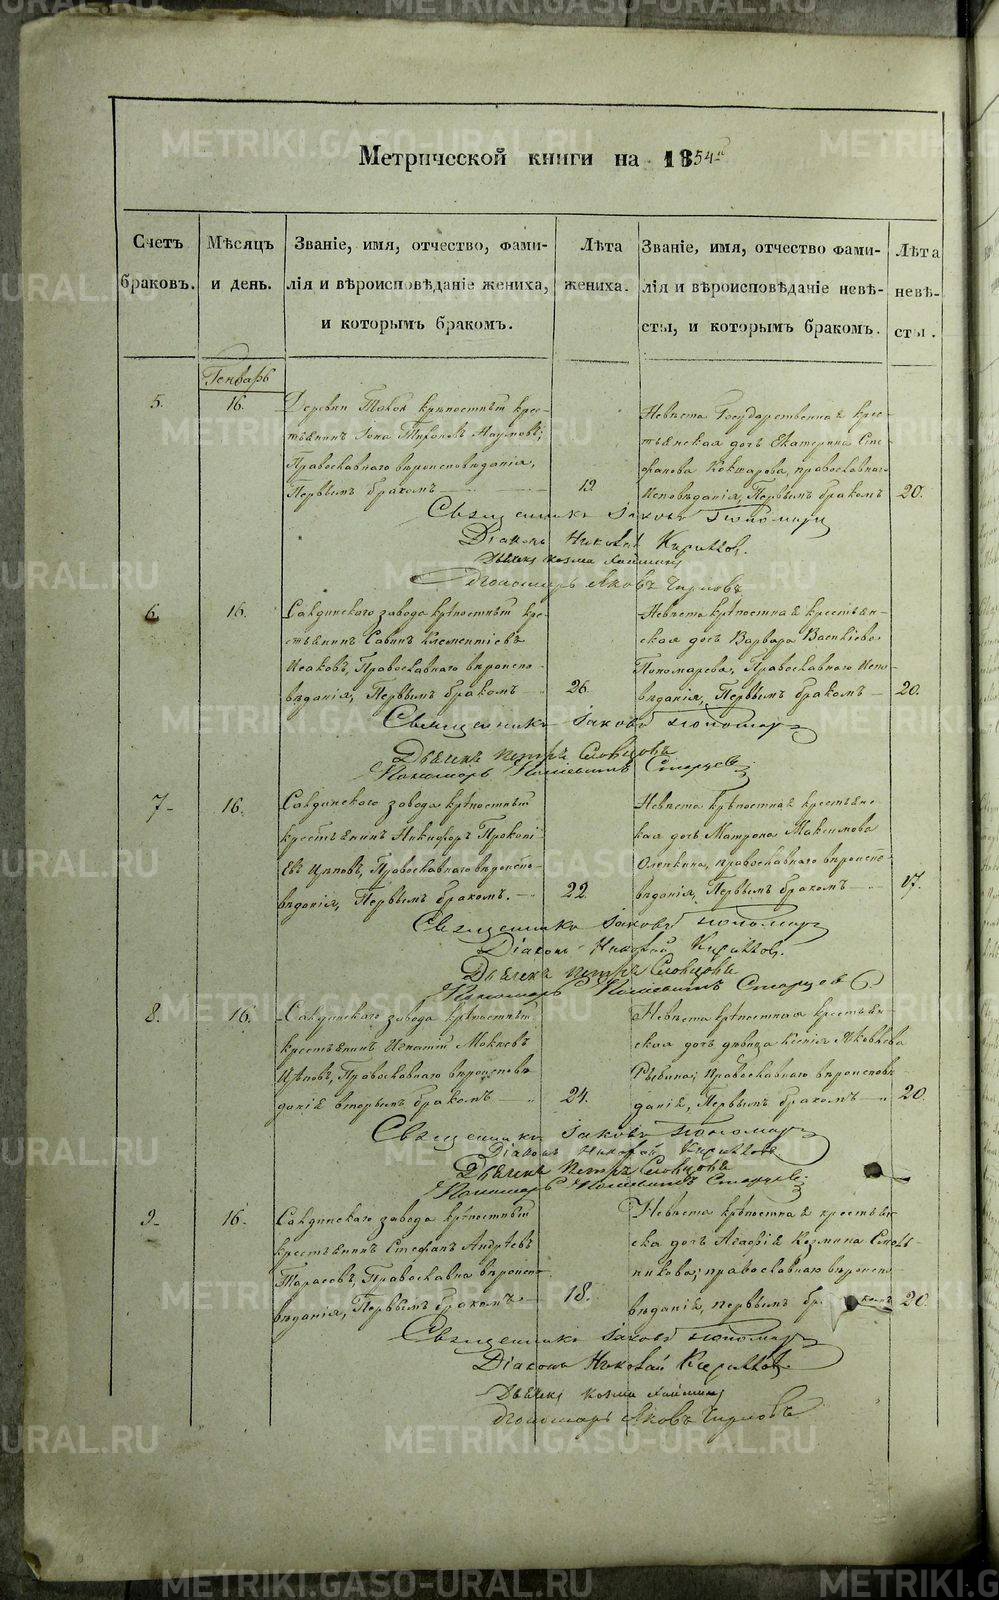 Метрической книги на 1854й
Счетъ браковъ.
Мѣсяцъ и день.
Званіе, имя, отчество, фамилія и вѣроисповѣданіе жениха, и которымъ бракомъ.
Лѣта жениха.
Званіе, имя, отчество фамилія и вѣроисповѣданіе невѣсты, и которымъ бракомъ.
Лѣта невѣсты.
Генварь
5.
16.
Деревни крѣпостный крес-
тьянинъ Іона Тихоновъ Наумовъ,
Православнаго вѣроисповѣданія,
Первымъ бракомъ
19.
Невѣста Государственная крес-
тьянская дочь Екатерина Сте-
фанова Кокшарова, православнаго
Исповѣданія, Первымъ бракомъ
20.
Священникъ Іаковъ Пономаревъ
Діаконъ Николай Кирилловъ.
Дьячекъ Козма
Пономарь Яковъ
6.
16.
Салдинскаго завода крѣпостный кре-
стьянинъ Савинъ Клементіевъ
Исаковъ, Православнаго вѣроиспо-
вѣданія, Первымъ бракомъ
26.
Невѣста крѣпостная крестьян-
ская дочь Варвара Василіева
Пономарева, Православнаго Испо-
вѣданія, Первымъ бракомъ
20.
Священникъ Іаковъ Пономаревъ
Дьячекъ Петръ Словцовъ
Пономарь Старцевъ
7
16.
Салдинскаго завода крѣпостный
крестьянинъ Никифоръ Прокопі-
евъ Цѣповъ, Православнаго вѣроиспо-
вѣданія, Первымъ бракомъ.
22.
Невѣста крѣпостная крестьянс-
кая дочь Матрона Максимова
Оленкина, православнаго вѣроиспо-
вѣданія, Первымъ бракомъ
17.
Священникъ Іаковъ Пономаревъ
Діаконъ Николай Кирилловъ.
Дьячекъ Петръ Словцовъ
Пономарь Старцевъ
8.
16.
Салдинскаго завода крѣпостный
крестьянинъ Игнатій Мокіевъ
Цѣповъ, Православнаго вѣроисповѣ-
данія вторымъ бракомъ
24.
Невѣста крѣпостная крестьян-
ская дочь дѣвица Ксенія Яковлева
Рыбина, православнаго вѣроисповѣ-
данія, Первымъ бракомъ
20.
Священникъ Іаковъ Пономаревъ
Діаконъ Николай Кирилловъ
Дьячекъ Петръ Словцовъ
Пономарь Старцевъ
9
16.
Салдинскаго завода крѣпостный
крестьянинъ Стефанъ Андреевъ
Тарасовъ, Православна вѣроиспо-
вѣданія, Первымъ бракомъ
18.
Невѣста крѣпостная крестьян-
ска дочь Агафія Козмина
православнаго вѣроиспо-
вѣданія, первымъ бракомъ
20.
Священникъ Іаковъ Пономаревъ
Діаконъ Николай Кирилловъ.
Дьячекъ Козма
Пономарь Яковъ
METRIKI.GASO-URAL.RU